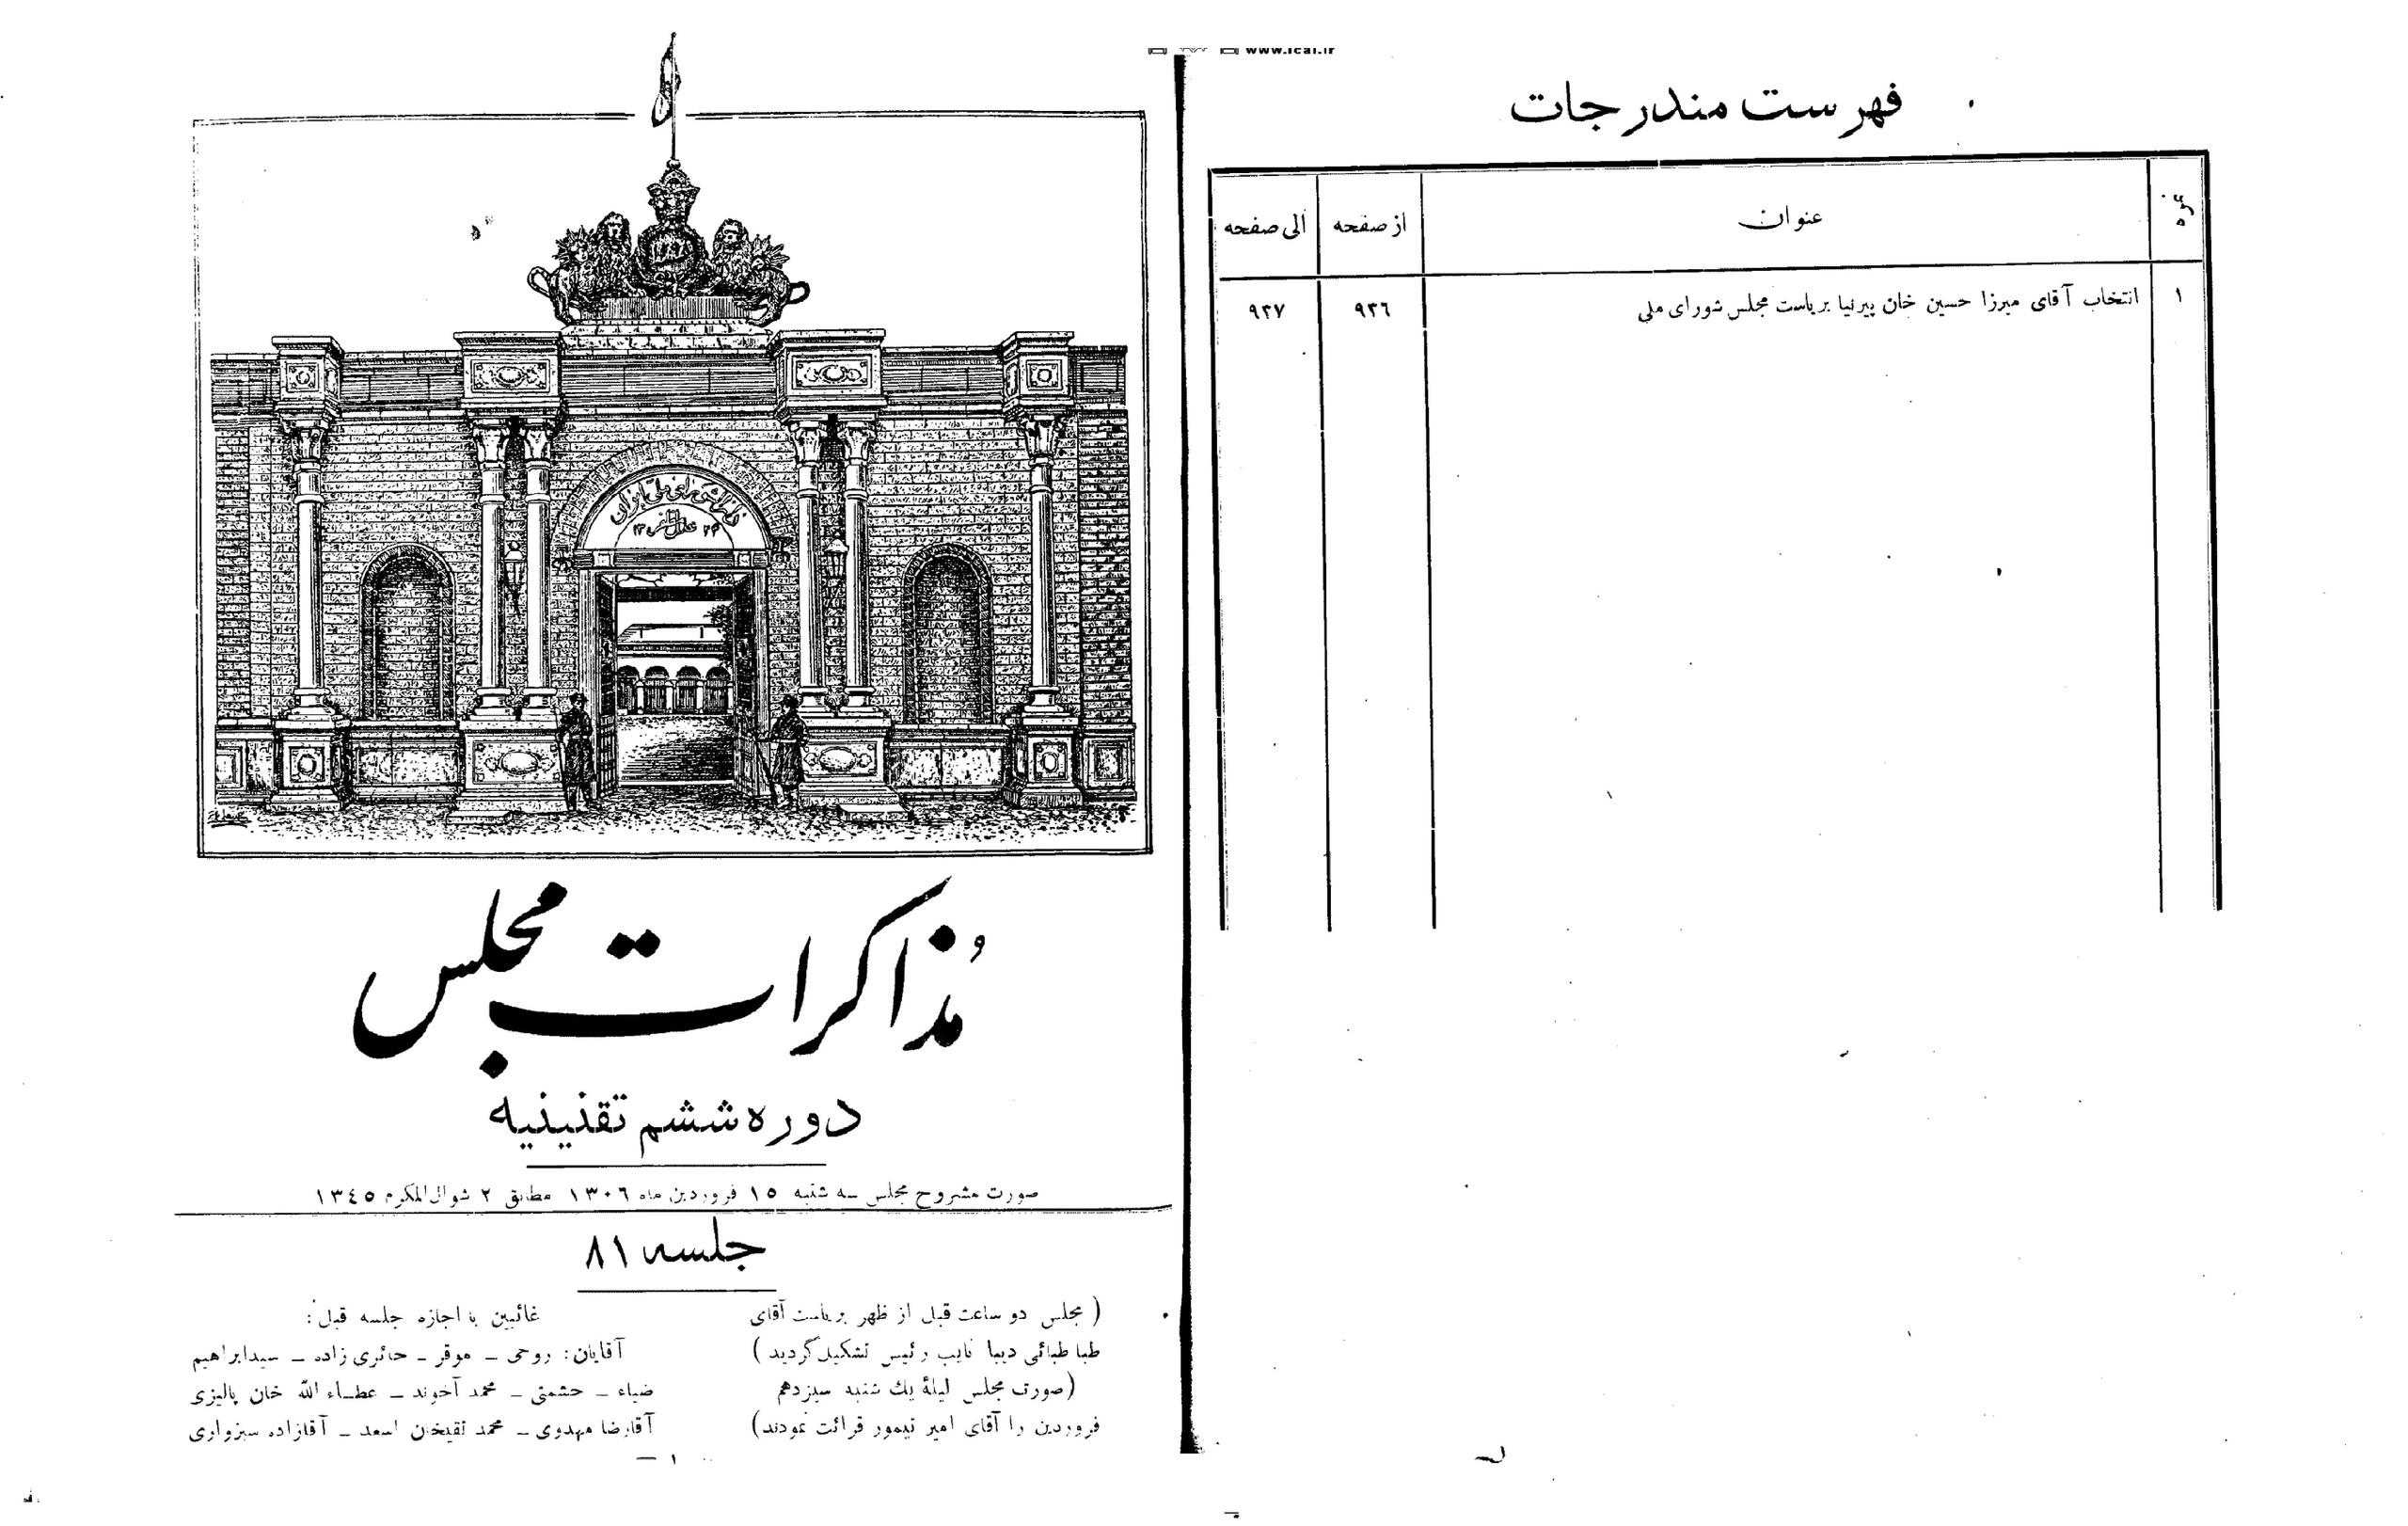 www.ical.ir
فهرست مندرجات
نمره عنوان از صفحه الی صفحه
۱ انتخاب آقای میرزا حسین خان پیرنیا بریاست مجلس شورای ملی ۹۳۶ ۹۳۷
دارالشورای ملی ایران
مذاکرات مجلس
دوره ششم تقنینیه
صورت مشروح مجلس سه شنبه ۱۵ فروردین ماه ۱۳۰۶ مطابق ۲ شوال المکرم ۱۳٤۵
جلسه ۸۱
( مجلس دو ساعت قبل از ظهر بریاست آقای
طباطبائی دیبا نایب رئیس تشکیل گردید )
(صورت مجلس لیلهٔ یك شنبه سیزدهم
فروردین را آقای امیر تیمور قرائت نمودند)
غائبین با اجازه جلسه قبل:
آقایان: روحی ـ موقر ـ حائری زاده ـ سیدابراهیم
ضیاء ـ حشمتی ـ محمد آخوند ـ عطاء الله خان پالیزی
آقارضا مهدوی ـ محمد تقیخان اسعد ـ آقازاده سبزواری
ـ ۱ ـ